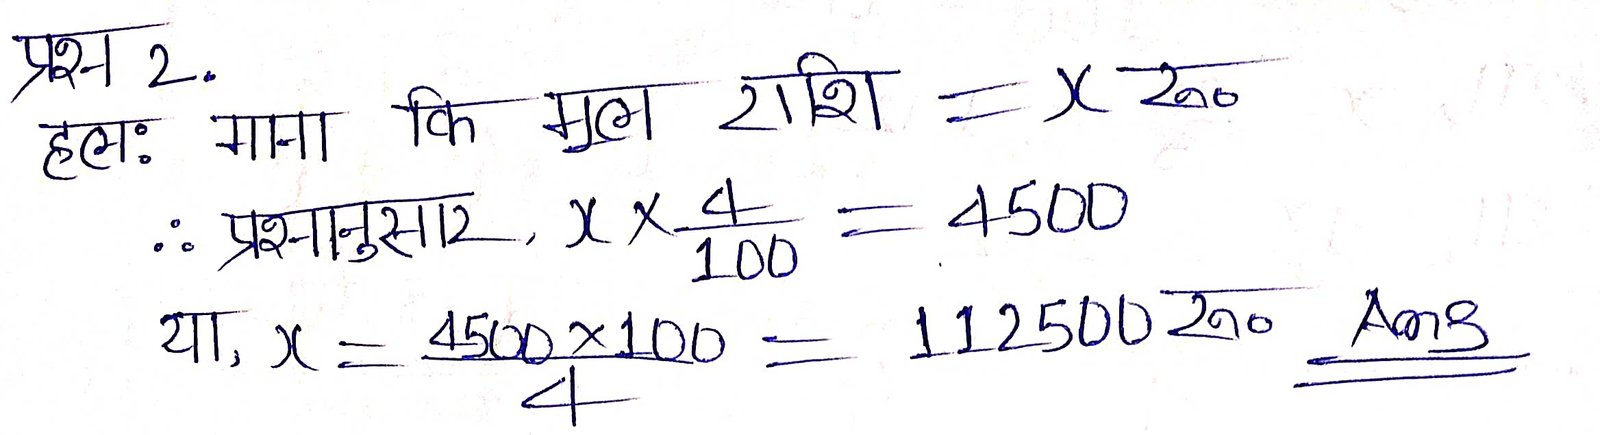 प्रश्न 2.
हलः माना कि मुल राशि = x रू०
∴ प्रश्नानुसार, x × 4/100 = 4500
या, x = 4500×100/4 = 112500 रू० Ans